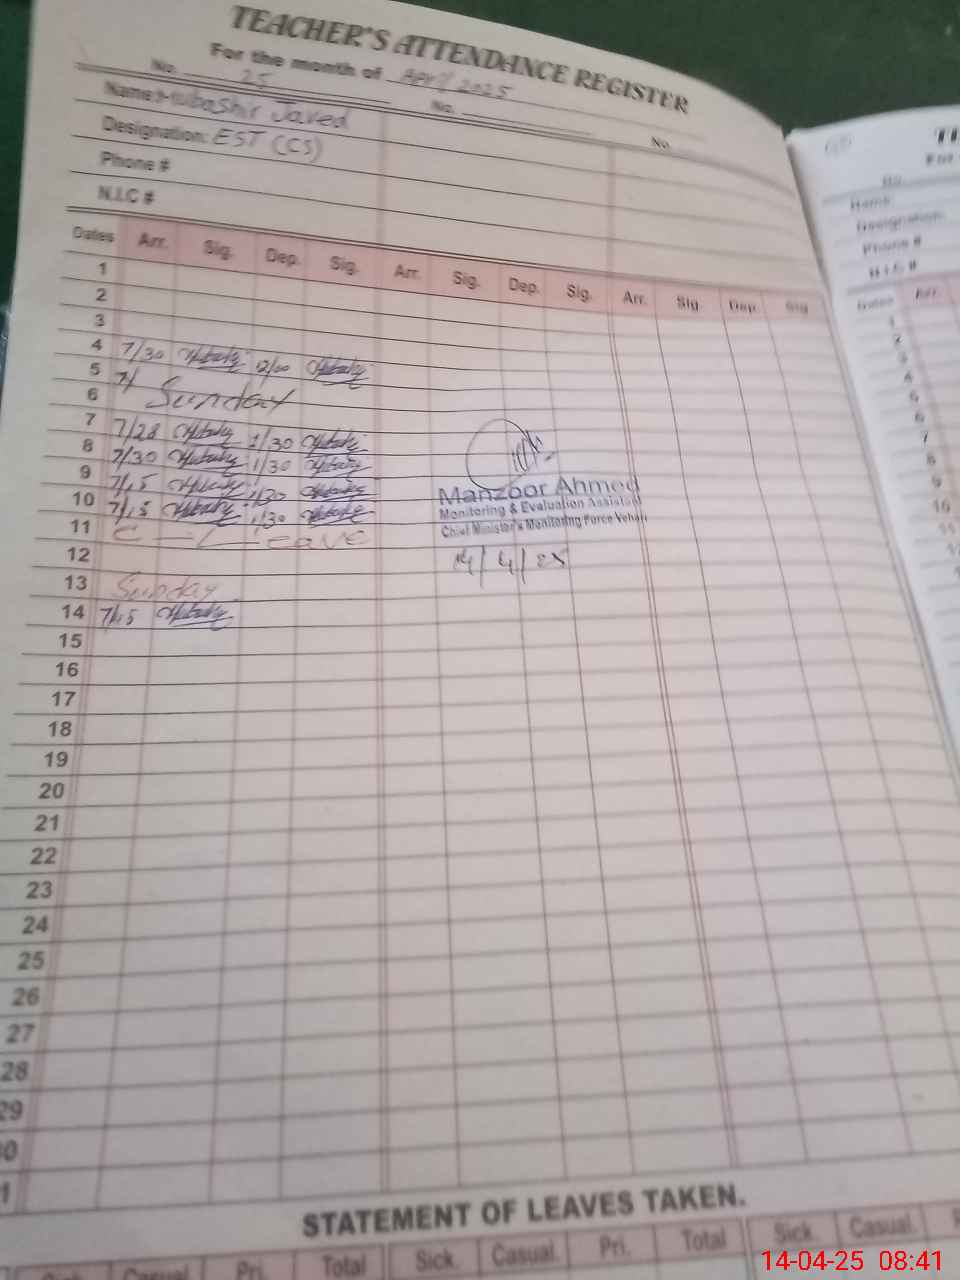 TEACHER'S ATTENDANCE REGISTER
For the month of April 2025
No. 25 No. No.
Name: Mubashir Javed
Designation: EST (CS)
Phone #
N.I.C #
Dates Arr. Sig. Dep. Sig. Arr. Sig. Dep. Sig. Arr. Sig. Dep. Sig
1
2
3
4 7/30 12/00
5 7/
6 Sunday
7 7/28 1/30
8 7/30 1/30
9 7/15 1/30
10 7/15 1/30
11 C - Leave
12
13 Sunday
14 7/15
15
16
17
18
19
20
21
22
23
24
25
26
27
28
29
0
1
Manzoor Ahmed
Monitoring & Evaluation Assistant
Chief Minister's Monitoring Force Vehari
14/4/25
STATEMENT OF LEAVES TAKEN.
Casual. Pri. Total Sick. Casual. Pri. Total Sick. Casual.
For
No.
Name:
Designation:
Phone #
N.I.C #
Dates Arr.
1
2
3
4
5
6
7
8
9
10
11
14-04-25 08:41